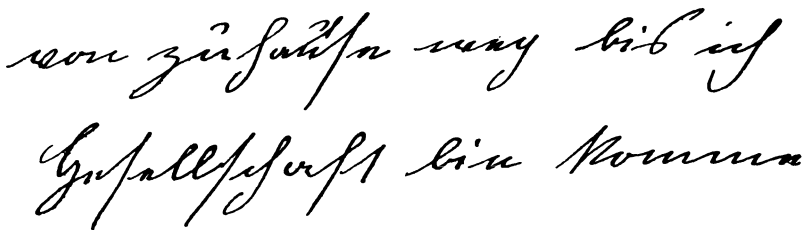 von zuhause weg bis ich
Gesellschaft bin komme